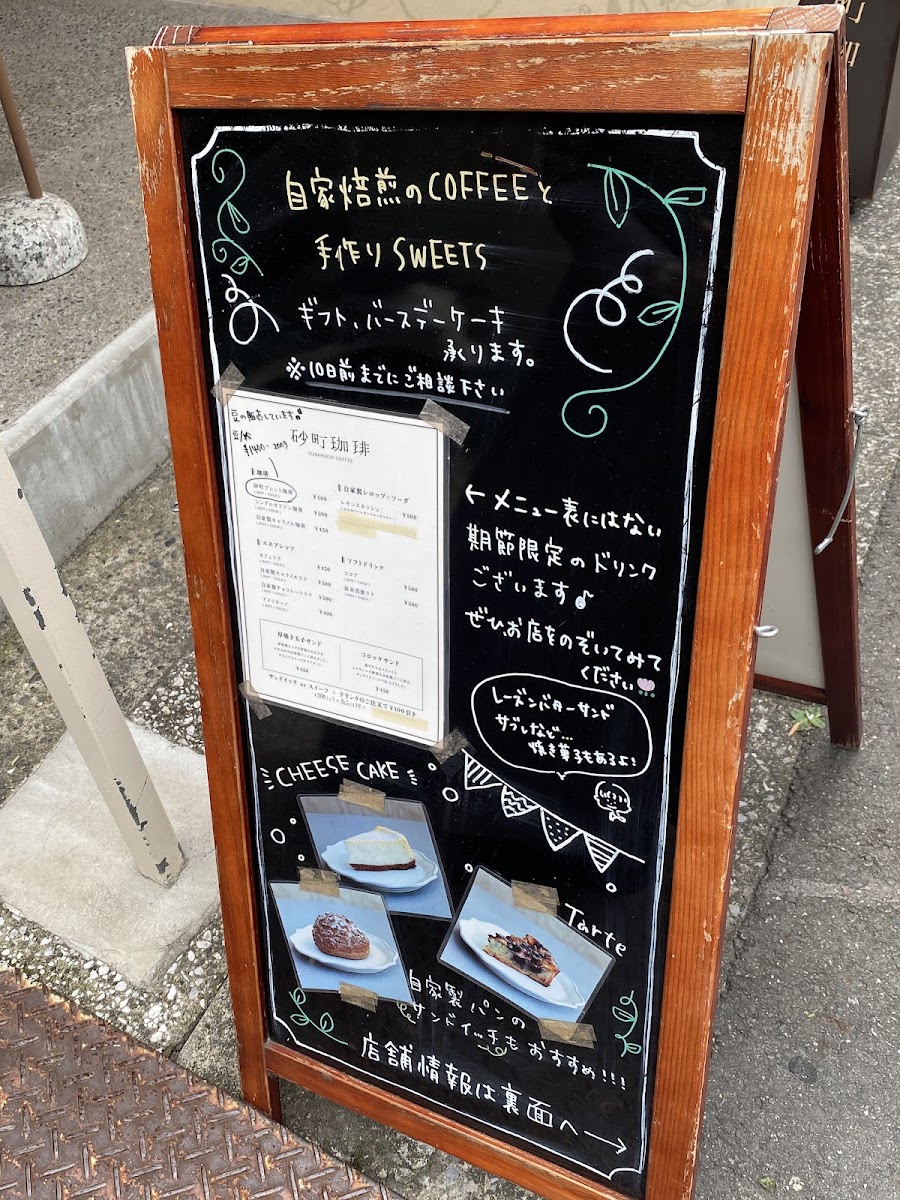 自家焙煎のCOFFEEと
手作りSWEETS
ギフト、バースデーケーキ
承ります。
※10日前までにご相談下さい
豆の販売しています♪
¥1400- 200g
砂町珈琲
SUNAMACHI COFFEE
珈琲
砂町ブレンド珈琲
(HOT・COLD)
¥400
シングルオリジン珈琲
¥500
自家製キャラメル珈琲
¥450
エスプレッソ
カフェラテ
¥450
自家製キャラメルラテ
¥500
自家製チョコレートラテ
¥500
アメリカーノ
¥400
自家製シロップ+ソーダ
レモンスカッシュ
¥500
ソフトドリンク
ココア
¥500
¥500
厚焼き玉子サンド
¥450
コロッケサンド
¥450
サンドイッチ or スイーツ + ドリンクのご注文で¥100引き
←メニュー表にはない
期節限定のドリンク
ございます♪
ぜひお店をのぞいてみて
ください
レーズンバターサンド
サブレなど…
焼き菓子もあるよ!
CHEESE CAKE
Tarte
自家製パンの
サンドイッチもおすすめ!!!
店舗情報は裏面へ→